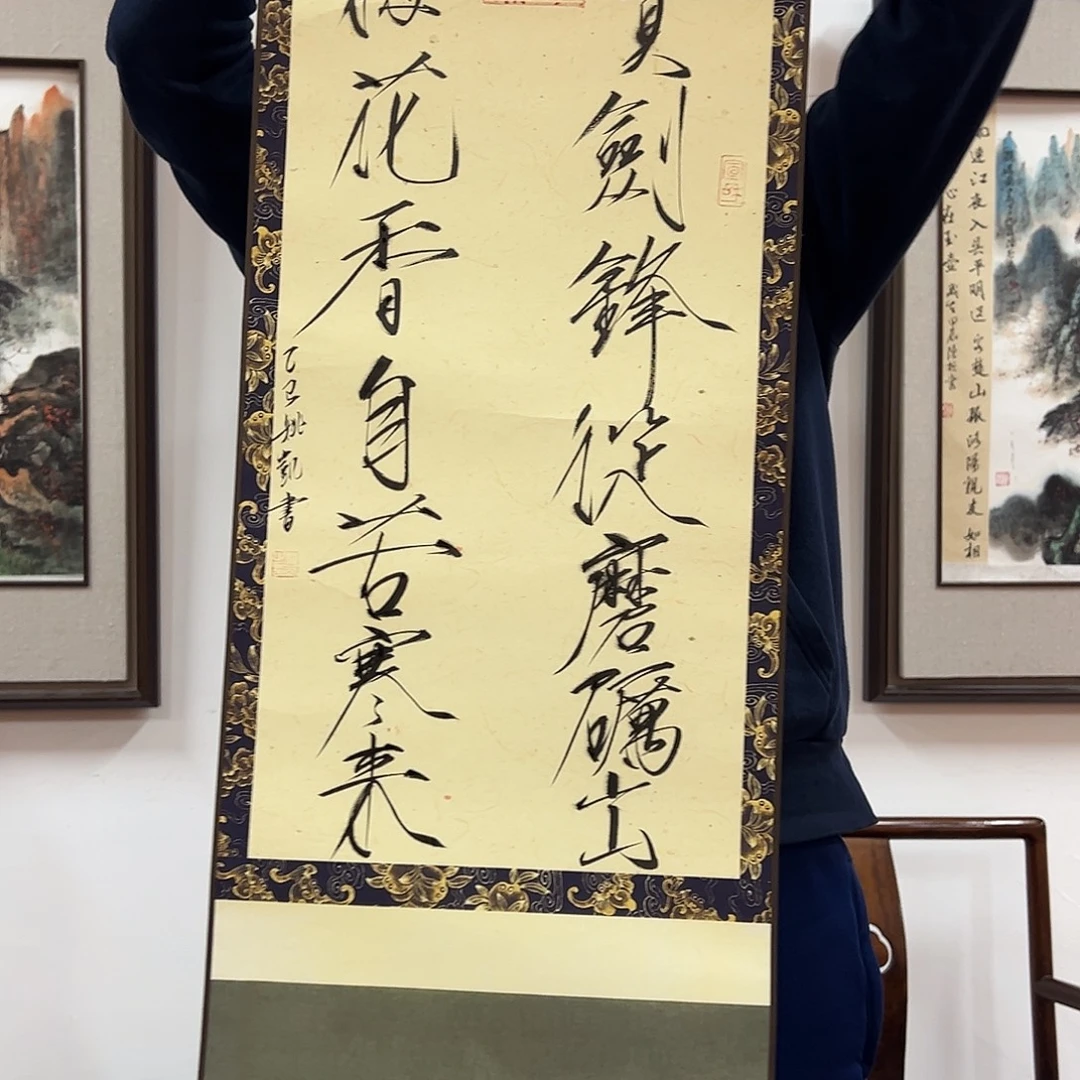 劍鋒從磨礪出
花香自苦寒來
乙巳姚凱書
入吳平明送客楚山孤洛陽親友如相
心在玉壺